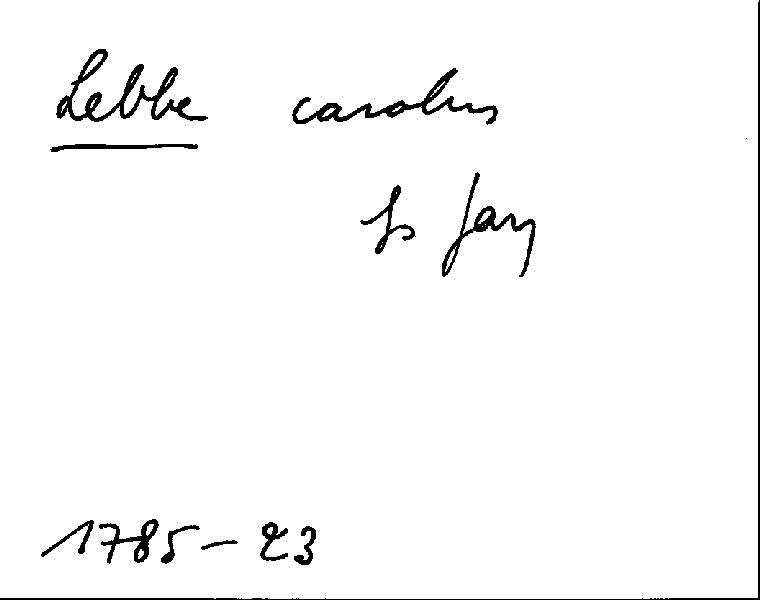 Lebbe carolus
fs Jan
1785-23